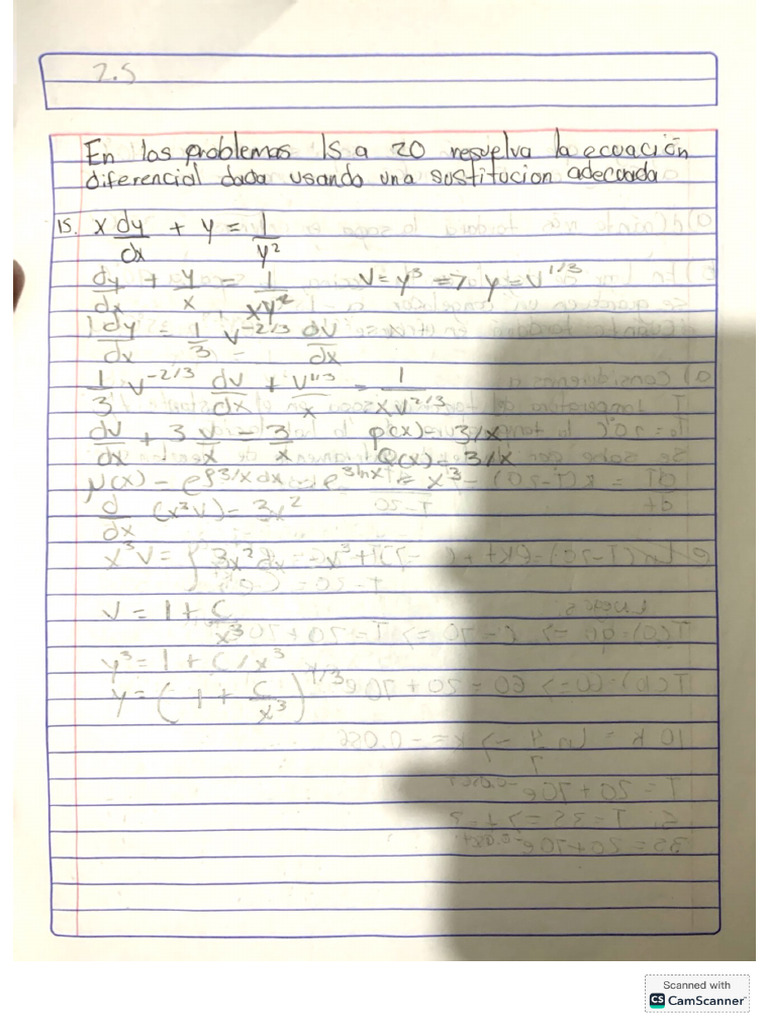 2.5
En los problemas 15 a 20 resuelva la ecuación
diferencial dada usando una sustitucion adecuada
15. x dy/dx + y = 1/y²
dy/dx + y/x = 1/xy² V = y³ => y = V^1/3
dy/dx = 1/3 V^-2/3 dV/dx
1/3 V^-2/3 dv/dx + V^1/3/x = 1/xV^2/3
dV/dx + 3 V/x = 3/x p(x) = 3/x
Q(x) = 3/x
μ(x) = e^∫3/x dx = e^3lnx = x³
d/dx (x³V) = 3x²
x³V = ∫ 3x² dx = x³ + C
V = 1 + C/x³
y³ = 1 + C/x³
y = (1 + C/x³)^1/3
Scanned with
CS CamScanner